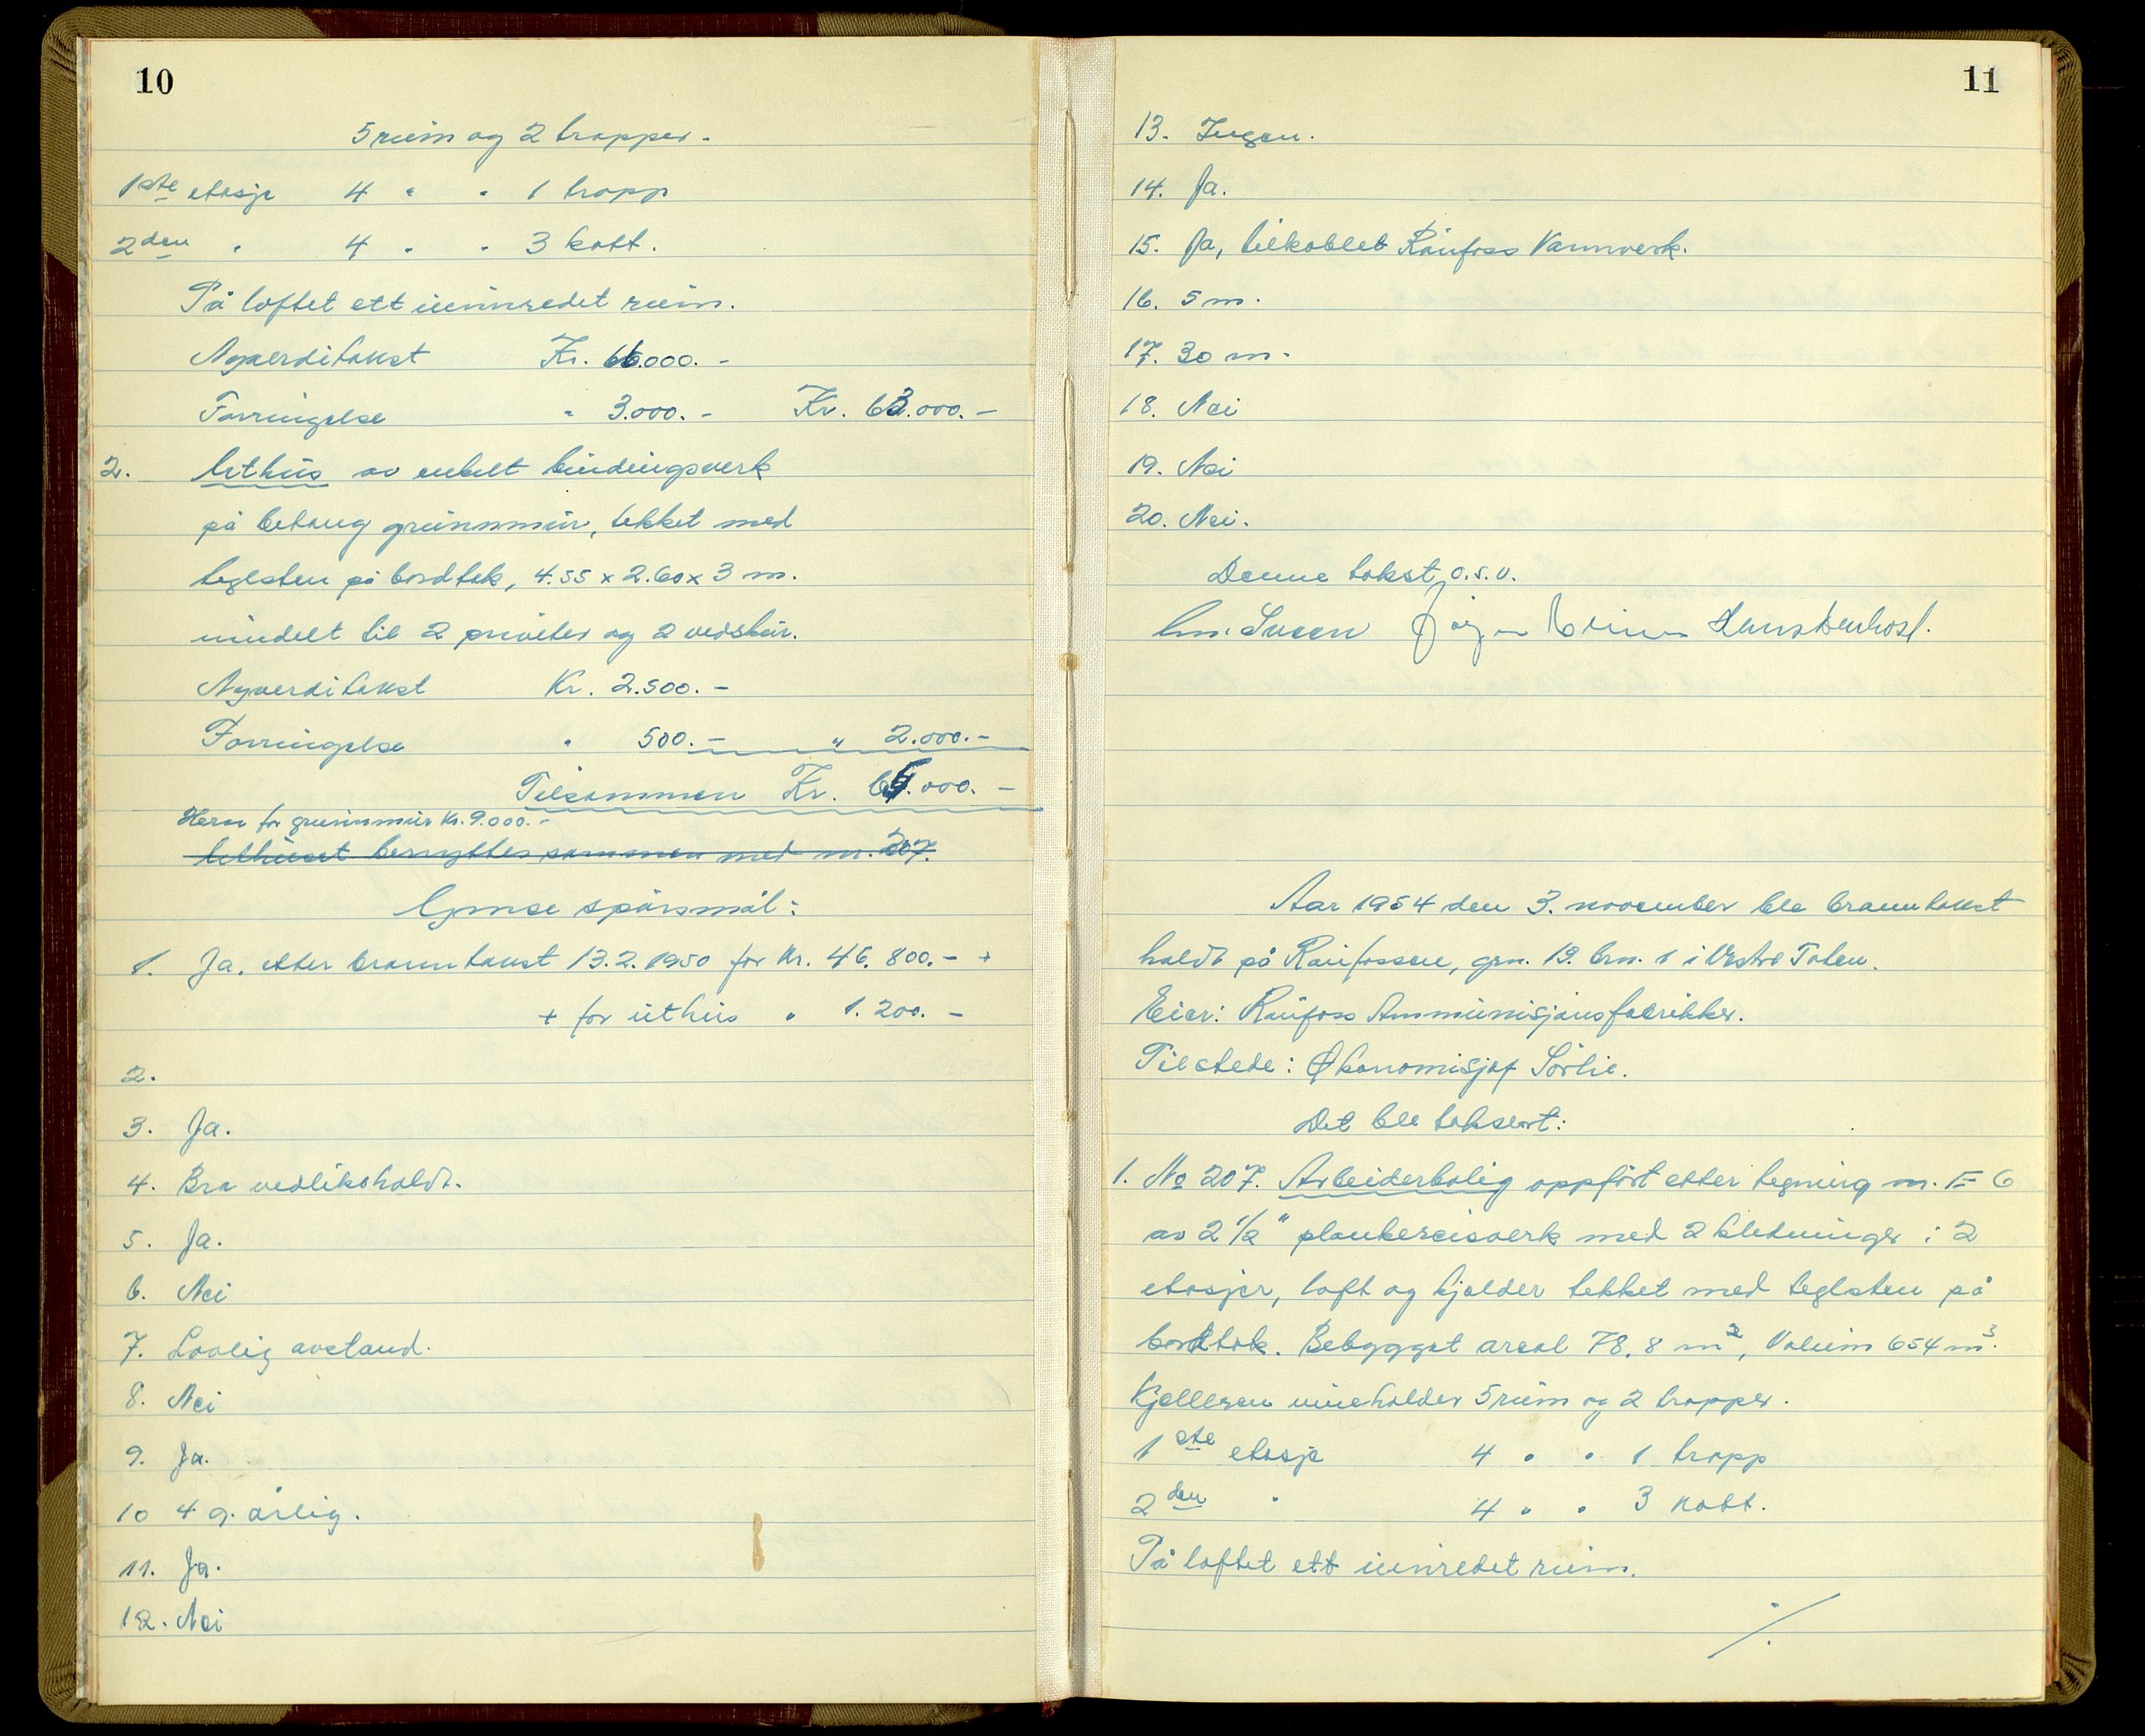 10
5 rum og 2 trapper.
1ste etasje 4 " " 1 trapp
2den " 4 " " 3 kott.
På loftet ett uinnredet rum.
Nyverditakst Kr. 66.000.-
Forringelse " 3.000.- Kr. 63.000.-
2. Uthus av enkelt bindingsverk
på betong grunnmur, tekket med
teglsten på bordtak, 4.55 x 2.60 x 3 m.
inndelt til 2 priveter og 2 vedskur.
Nyverditakst Kr. 2.500.-
Forringelse " 500.- " 2.000.-
Tilsammen Kr. 65.000.-
Herav for grunnmur Kr. 9.000.-
Uthuset benyttes sammen med nr. 207.
Ymse spörsmål:
1. Ja. etter branntakst 13.2.1950 for Kr. 46.800.- +
+ for uthus " 1.200.-
2.
3. Ja.
4. Bra vedlikeholdt.
5. Ja.
6. Nei
7. Lovlig avstand.
8. Nei
9. Ja.
10 4 g. årlig.
11. Ja.
12. Nei
11
13. Ingen.
14. Ja.
15. Ja, tilkoblet Raufoss Vannverk.
16. 5 m.
17. 30 m.
18. Nei
19. Nei
20. Nei.
Denne takst o.s.v.
Sveen
Aar 1954 den 3. november ble branntakst
holdt på Raufossen, grn. 19. brn. 1 i Vestre Toten.
Eier: Raufoss Ammunisjonsfabrikker.
Tilstede: Økonomisjef Sörlie.
Det ble taksert:
1. No 207. Arbeiderbolig oppfört etter tegning nr. F 6
av 2 1/2" plankereisverk med 2 kledninger i 2
etasjer, loft og kjelder tekket med teglsten på
bordtak. Bebygget areal 78.8 m2, Volum 654 m3.
Kjelleren inneholder 5 rum og 2 trapper.
1ste etasje 4 " " 1 trapp
2den " 4 " " 3 kott.
På loftet ett uinnredet rum.
./.